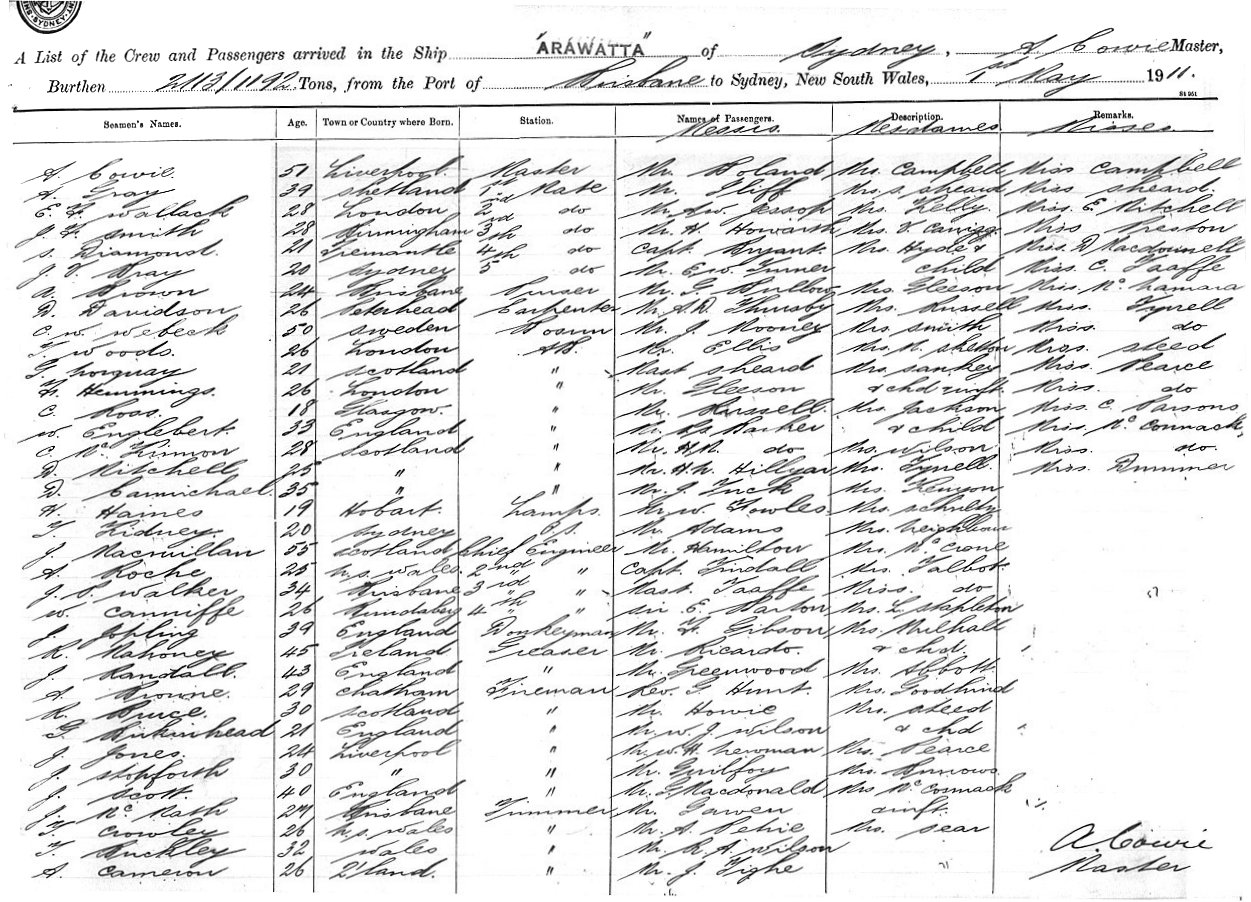 SYDNEY
A List of the Crew and Passengers arrived in the Ship "ARAWATTA" of Sydney, A Cowie Master,
Burthen 2113/1192 Tons, from the Port of Brisbane to Sydney, New South Wales, 1st May 1911.
St 951
Seamen's Names. Age. Town or Country where Born. Station. Names of Passengers. Description. Remarks.
Messrs. Mesdames Misses.
A. Cowie. 51 Liverpool. Master Mr. Boland Mrs. Campbell Miss Campbell
A. Gray 39 Shetland 1st Mate Mr. Iliff Mrs. S. Sheard Miss Sheard.
E. H. Wallack 28 London 2nd do Mr. A.W. Jessop Mrs. Kelly. Miss. E. Mitchell
J. H. Smith 28 Birmingham 3rd do Mr. H. Howarth Mrs. V. Miss Preston
S. Diamond. 21 Fremantle 4th do Capt. Bryant. Mrs. Hyde & Miss. D Macdonnell
J. V. Bray 20 Sydney 5th do Mr. E.W. Turner child Miss. C. Taaffe
A. Brown 24 Brisbane Purser Mr. G. Mrs. Gleeson Miss. McNamara
D. Davidson 26 Peterhead Carpenter Mr. A.D. Thursby Mrs. Russell Miss. Tyrell
C. W. Webeck 50 Sweden Bosun Mr. J. Mooney Mrs. Smith Miss. do
T. Woods. 26 London AB. Mr. Ellis Mrs. N. Skelton Miss. Steed
G. 21 Scotland " Mast Sheard Mrs. Sankey Miss. Pearce
H. Hemmings. 26 London " Mr. Gleeson & chd & inft. Miss. do
C. Ross. 18 Glasgow. " Mr. Russell. Mrs. Jackson Miss. C. Parsons
W. Englebert. 33 England " Mr. Barker & child Miss. McCormack,
C. McKinnon 28 Scotland " Mr. H.R. do Mrs. Wilson Miss. do.
D. Mitchell 25 " " Mr. H.N. Hillyar Mrs. Tyrell Miss. Drummer
D. Carmichael. 35 " " Mr. J. Tuck Mrs. Kenyon
H. Haines 19 Hobart. Lamps. Mr. W. Fowles Mrs.
T. Kidney. 20 Sydney O.S. Mr. Adams Mrs. Neighbour
J. Macmillan 55 Scotland Chief Engineer Mr. Hamilton Mrs. McCrone
A. Roche 25 N.S. Wales. 2nd " Capt. Tindall Mrs. Talbot
J. S. Walker 34 Brisbane 3rd " Mast. Taaffe Miss. do
W. Canniffe 26 Bundaberg 4th " Sir. E. Barton Mrs. L. Stapleton
J. Jopling 39 England Donkeyman Mr. H. Gibson Mrs. Mulhall
R. Mahoney 45 Ireland Greaser Mr. Ricardo. & chd.
J. Randall. 43 England " Mr. Greenwood Mrs. Abbott
A. Browne. 29 Chatham Fireman Rev. G. Hunt. Mrs. Goodhind
R. Bruce. 30 Scotland " Mr. Howie Mrs. Steed
G. Birkinhead 21 England " Mr. W. J. Wilson & chd
J. Jones. 24 Liverpool " Mr. W. H. Newman Mrs. Pearce
J. Stopforth 30 " " Mr. Guilfoy Mrs. Burrows.
J. Scott. 40 England " Mr. G. Macdonald Mrs McCormack
J. McMath 27 Brisbane Trimmer Mr. Garven & inft.
T. Crowley 26 N.S. Wales " Mr. A. Petrie Mrs. Sear
T. Buckley 32 Wales " Mr. R. A. Wilson A. Cowie
A. Cameron 26 Z'land. " Mr. J. Tighe Master